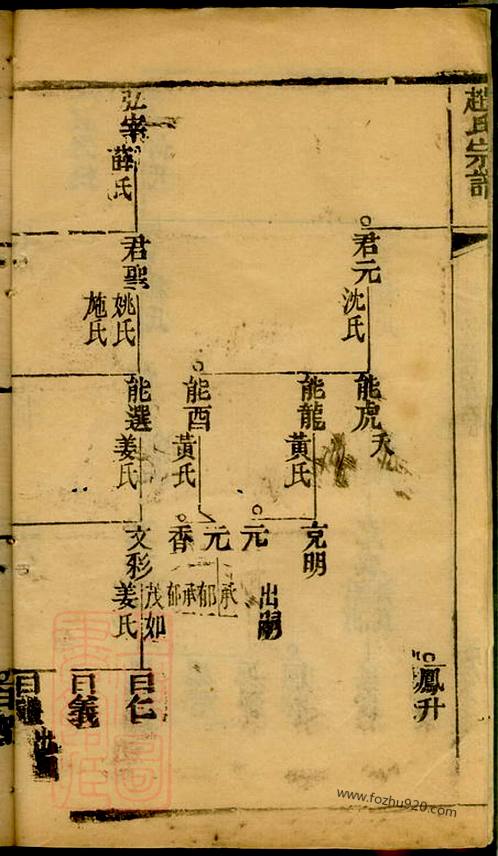 趙氏宗譜
君元
沈氏
能虎
夭
能龍
黃氏
克明
元
出嗣
鳳升
能酉
黃氏
元
承郁
香
承郁
弘
薛氏
君聖
姚氏
施氏
能選
姜氏
文彩
茂如
姜氏
曰仁
曰義
曰
www.fozhu920.com